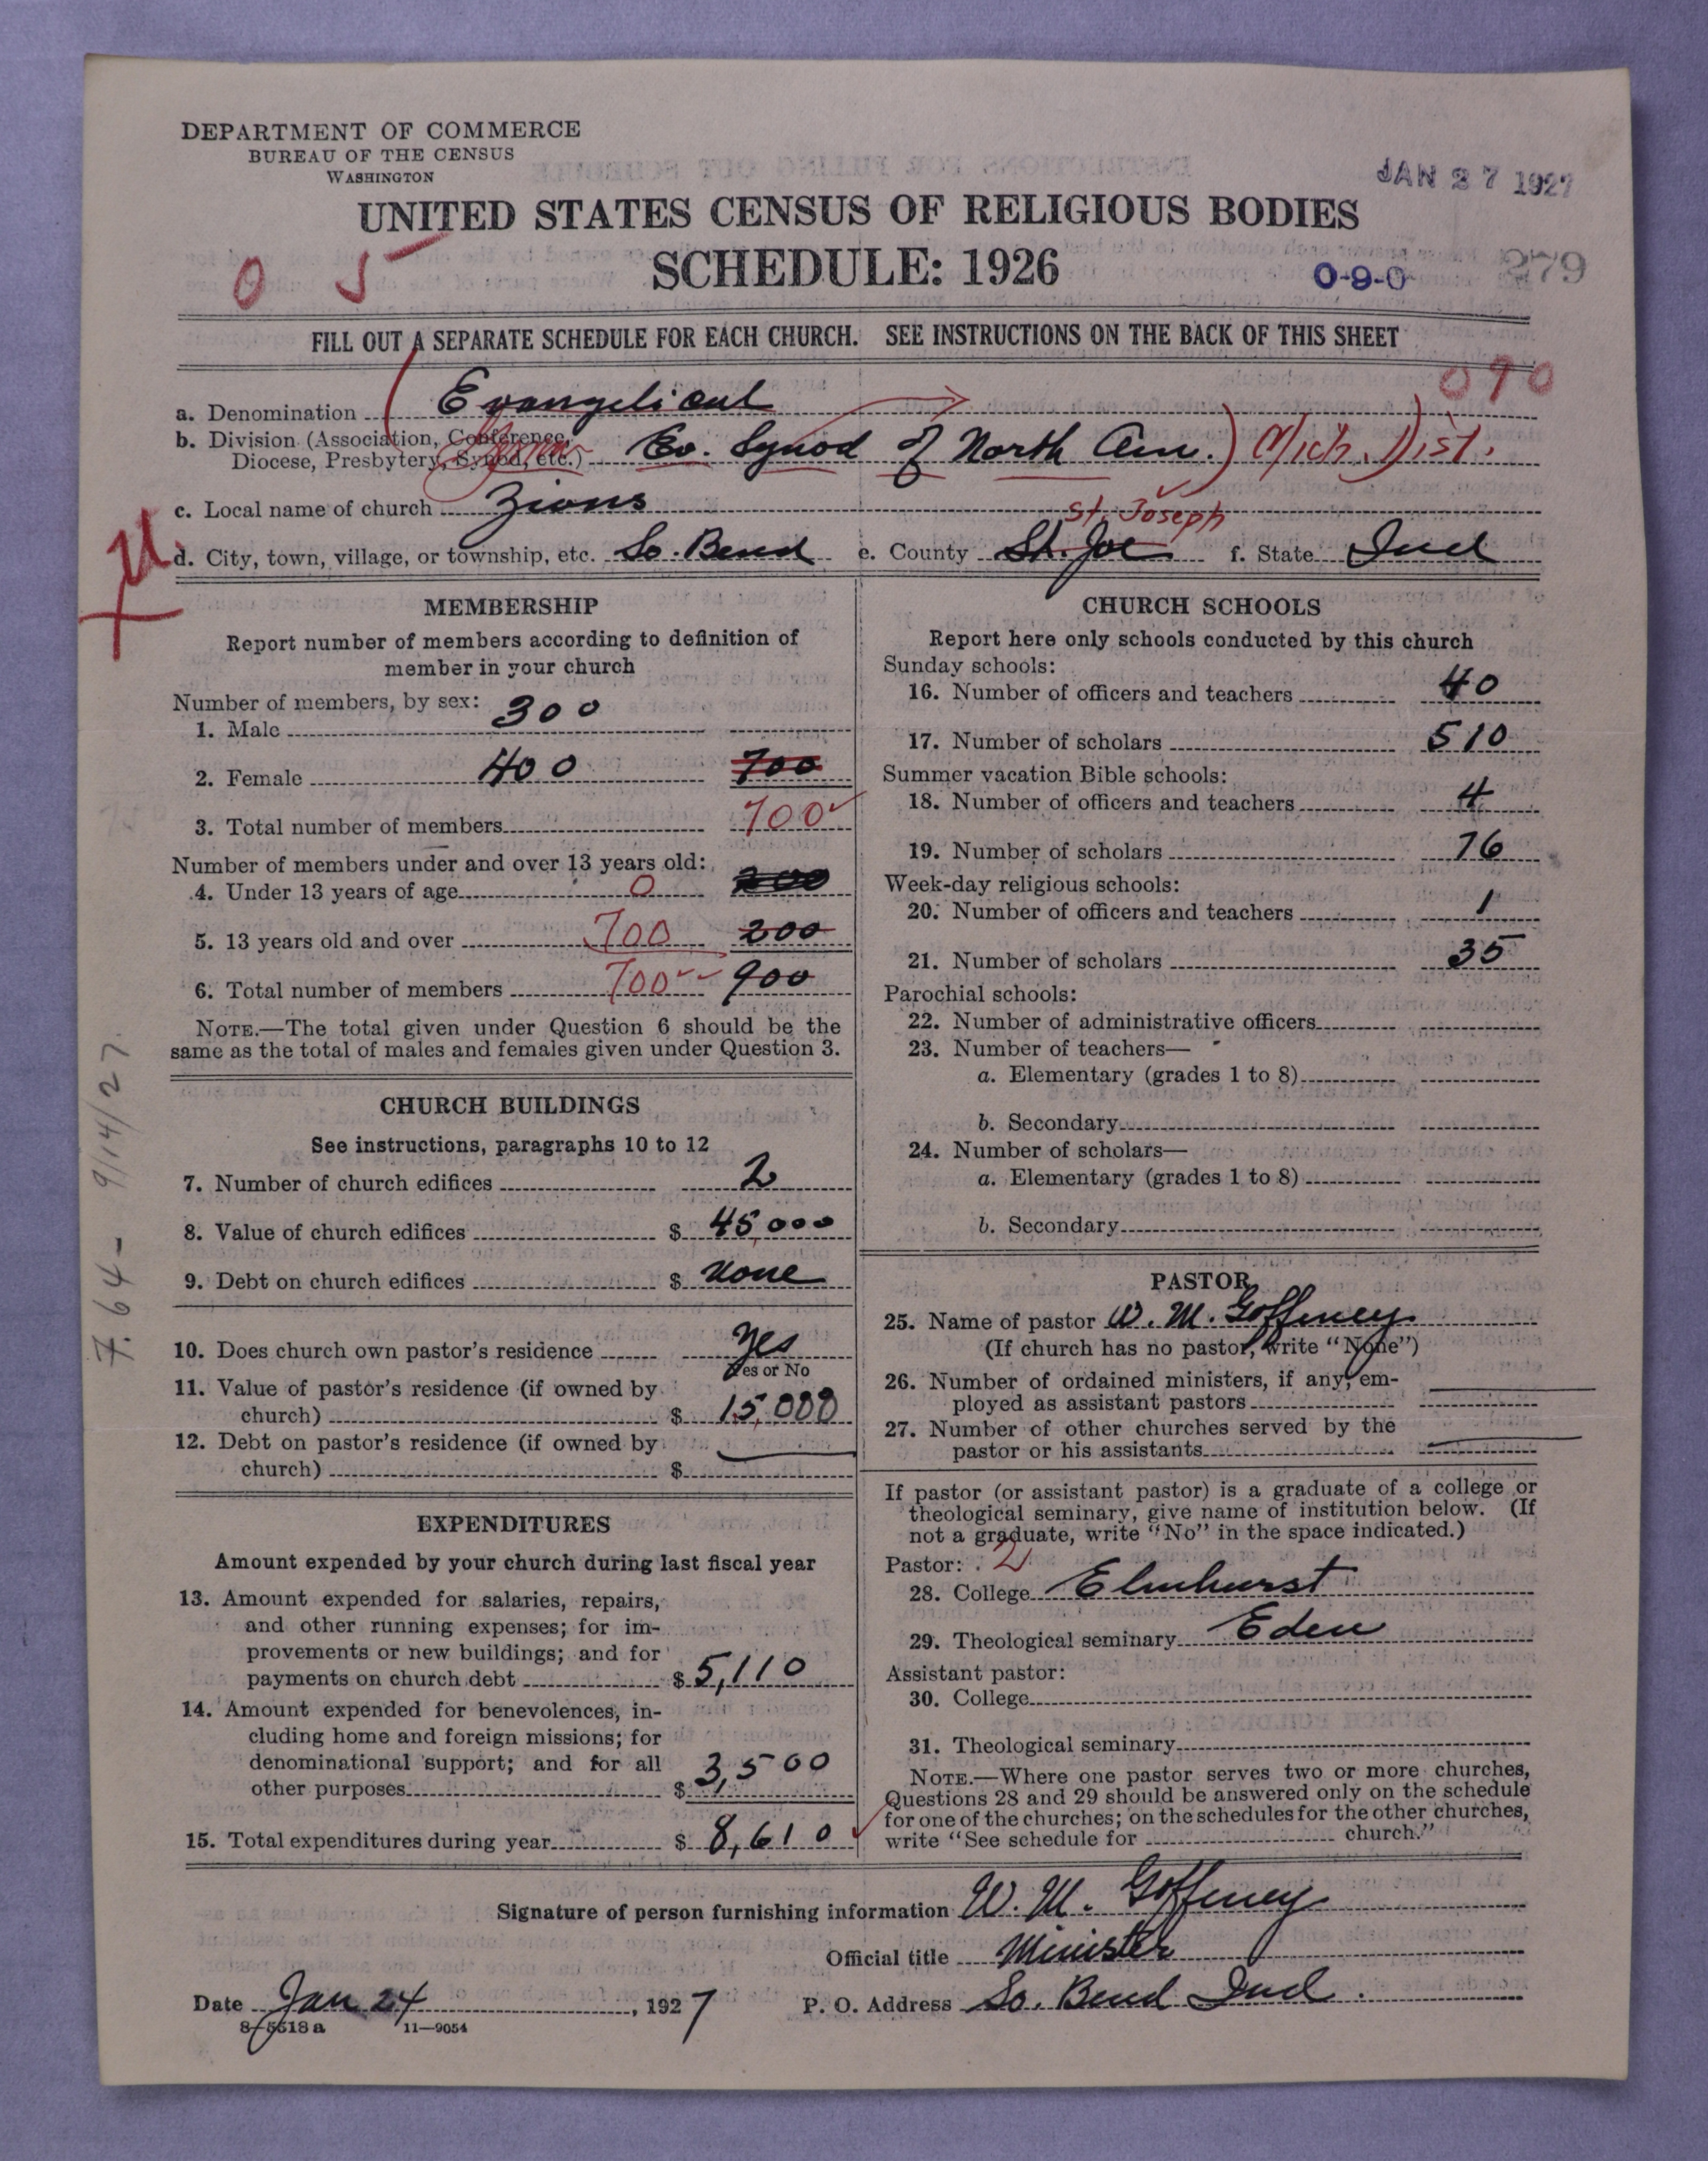 DEPARTMENT OF COMMERCE
BUREAU OF THE CENSUS
WASHINGTON
JAN 27 1927
UNITED STATES CENSUS OF RELIGIOUS BODIES
SCHEDULE: 1926
0 5
0-9-0
279
FILL OUT A SEPARATE SCHEDULE FOR EACH CHURCH. SEE INSTRUCTIONS ON THE BACK OF THIS SHEET
090
a. Denomination Evangelical
b. Division (Association, Conference,
Diocese, Presbytery, Synod, etc.) Ev. Synod of North Am.) Mich. Dist.
c. Local name of church Zions
St. Joseph
d. City, town, village, or township, etc. So. Bend e. County St. Joe f. State Ind
MEMBERSHIP
Report number of members according to definition of
member in your church
Number of members, by sex:
1. Male 300
2. Female 400 700
3. Total number of members 700
Number of members under and over 13 years old:
4. Under 13 years of age 0 200
5. 13 years old and over 700 200
6. Total number of members 700 900
NOTE.—The total given under Question 6 should be the
same as the total of males and females given under Question 3.
CHURCH BUILDINGS
See instructions, paragraphs 10 to 12
7. Number of church edifices 2
8. Value of church edifices $ 45,000
9. Debt on church edifices $ None
10. Does church own pastor's residence Yes
Yes or No
11. Value of pastor's residence (if owned by
church) $ 15,000
12. Debt on pastor's residence (if owned by
church) $
EXPENDITURES
Amount expended by your church during last fiscal year
13. Amount expended for salaries, repairs,
and other running expenses; for im-
provements or new buildings; and for
payments on church debt $ 5,110
14. Amount expended for benevolences, in-
cluding home and foreign missions; for
denominational support; and for all
other purposes $ 3,500
15. Total expenditures during year $ 8,610
7.64- 9/14/27
CHURCH SCHOOLS
Report here only schools conducted by this church
Sunday schools:
16. Number of officers and teachers 40
17. Number of scholars 510
Summer vacation Bible schools:
18. Number of officers and teachers 4
19. Number of scholars 76
Week-day religious schools:
20. Number of officers and teachers 1
21. Number of scholars 35
Parochial schools:
22. Number of administrative officers
23. Number of teachers—
a. Elementary (grades 1 to 8)
b. Secondary
24. Number of scholars—
a. Elementary (grades 1 to 8)
b. Secondary
PASTOR
25. Name of pastor W. M. Goffeney
(If church has no pastor, write "None")
26. Number of ordained ministers, if any, em-
ployed as assistant pastors
27. Number of other churches served by the
pastor or his assistants
If pastor (or assistant pastor) is a graduate of a college or
theological seminary, give name of institution below. (If
not a graduate, write "No" in the space indicated.)
Pastor: 2
28. College Elmhurst
29. Theological seminary Eden
Assistant pastor:
30. College
31. Theological seminary
NOTE.—Where one pastor serves two or more churches,
Questions 28 and 29 should be answered only on the schedule
for one of the churches; on the schedules for the other churches,
write "See schedule for church."
Signature of person furnishing information W. M. Goffeney
Official title Minister
Date Jan 24, 1927
P. O. Address So. Bend Ind.
8-5518 a 11—9054